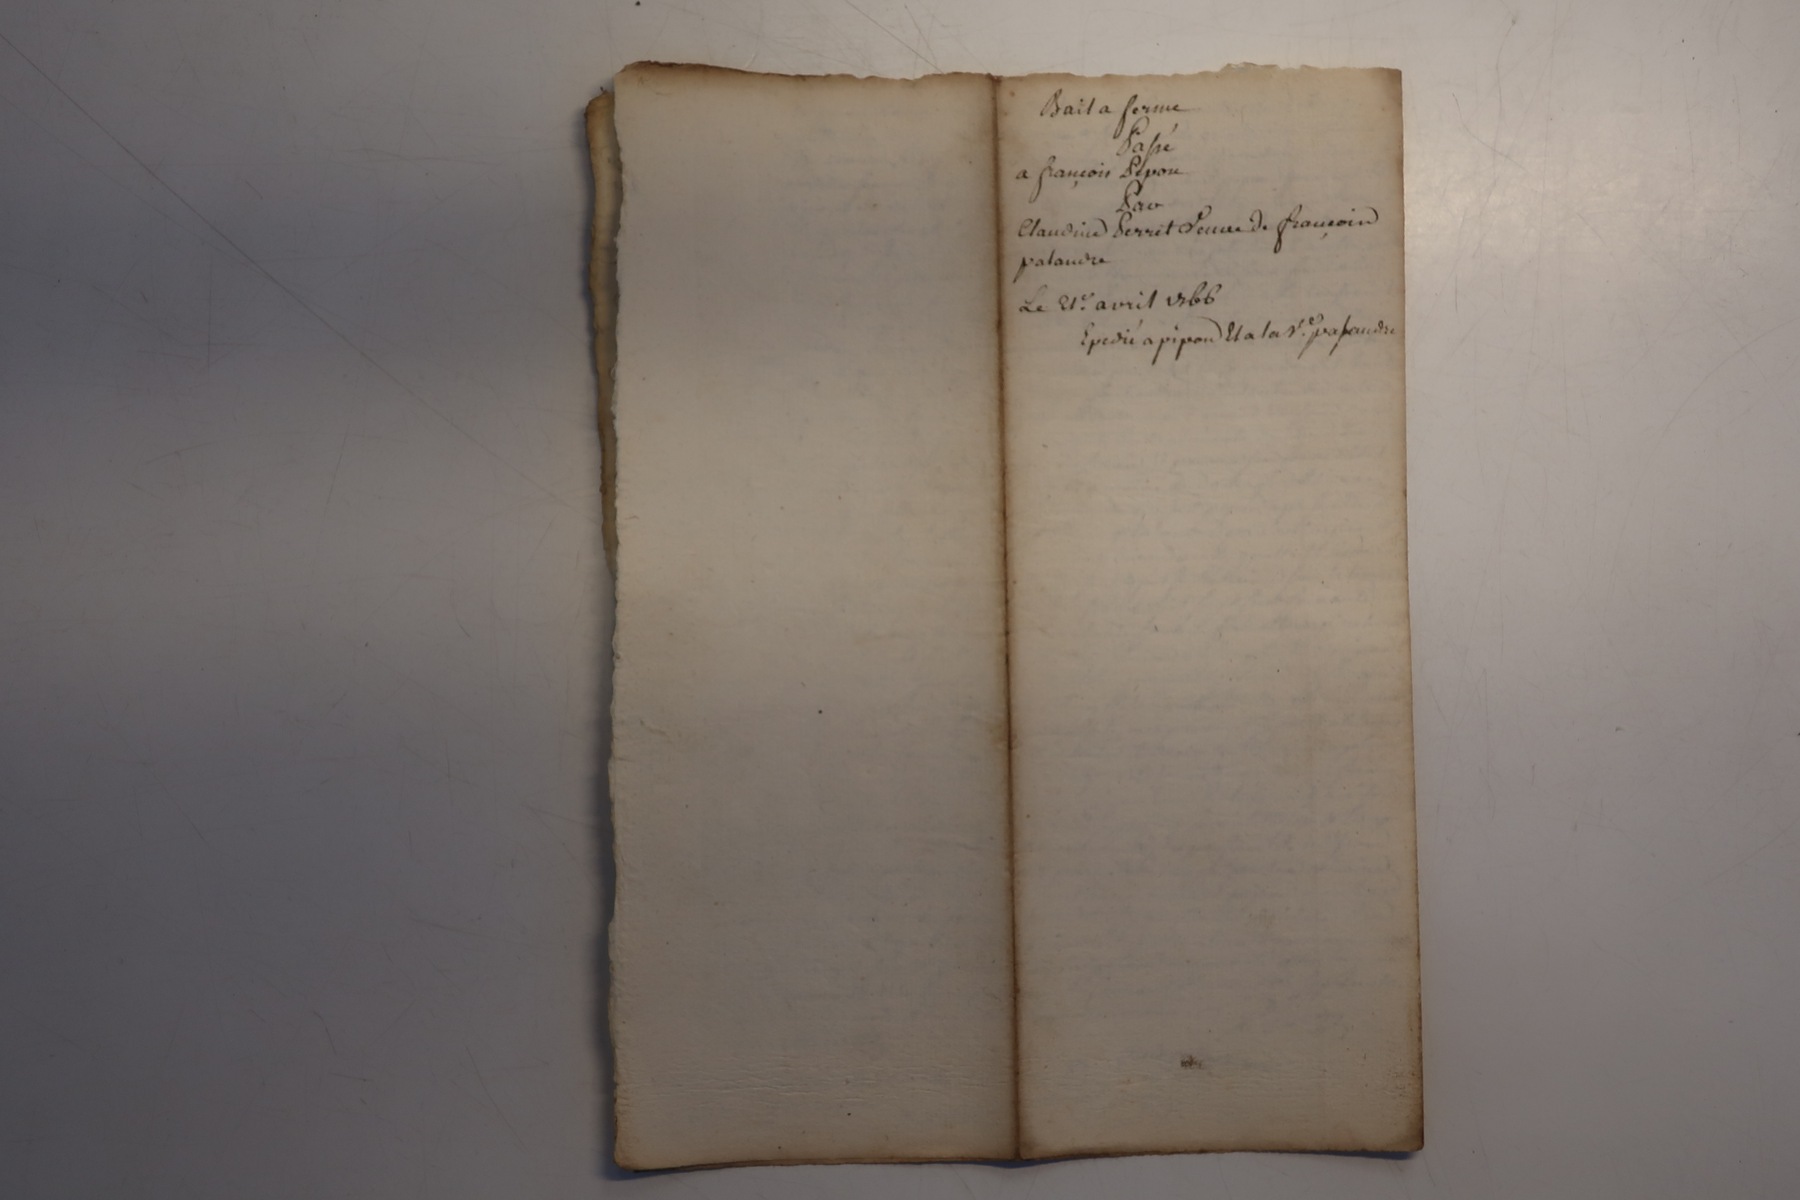 Bail a ferme
Passé
a françois Pepon
Par
Claudine Perret Veuve de françois
palandre
Le 21e. avril 1766
Epedié a pipon Et a la Ve. palandre